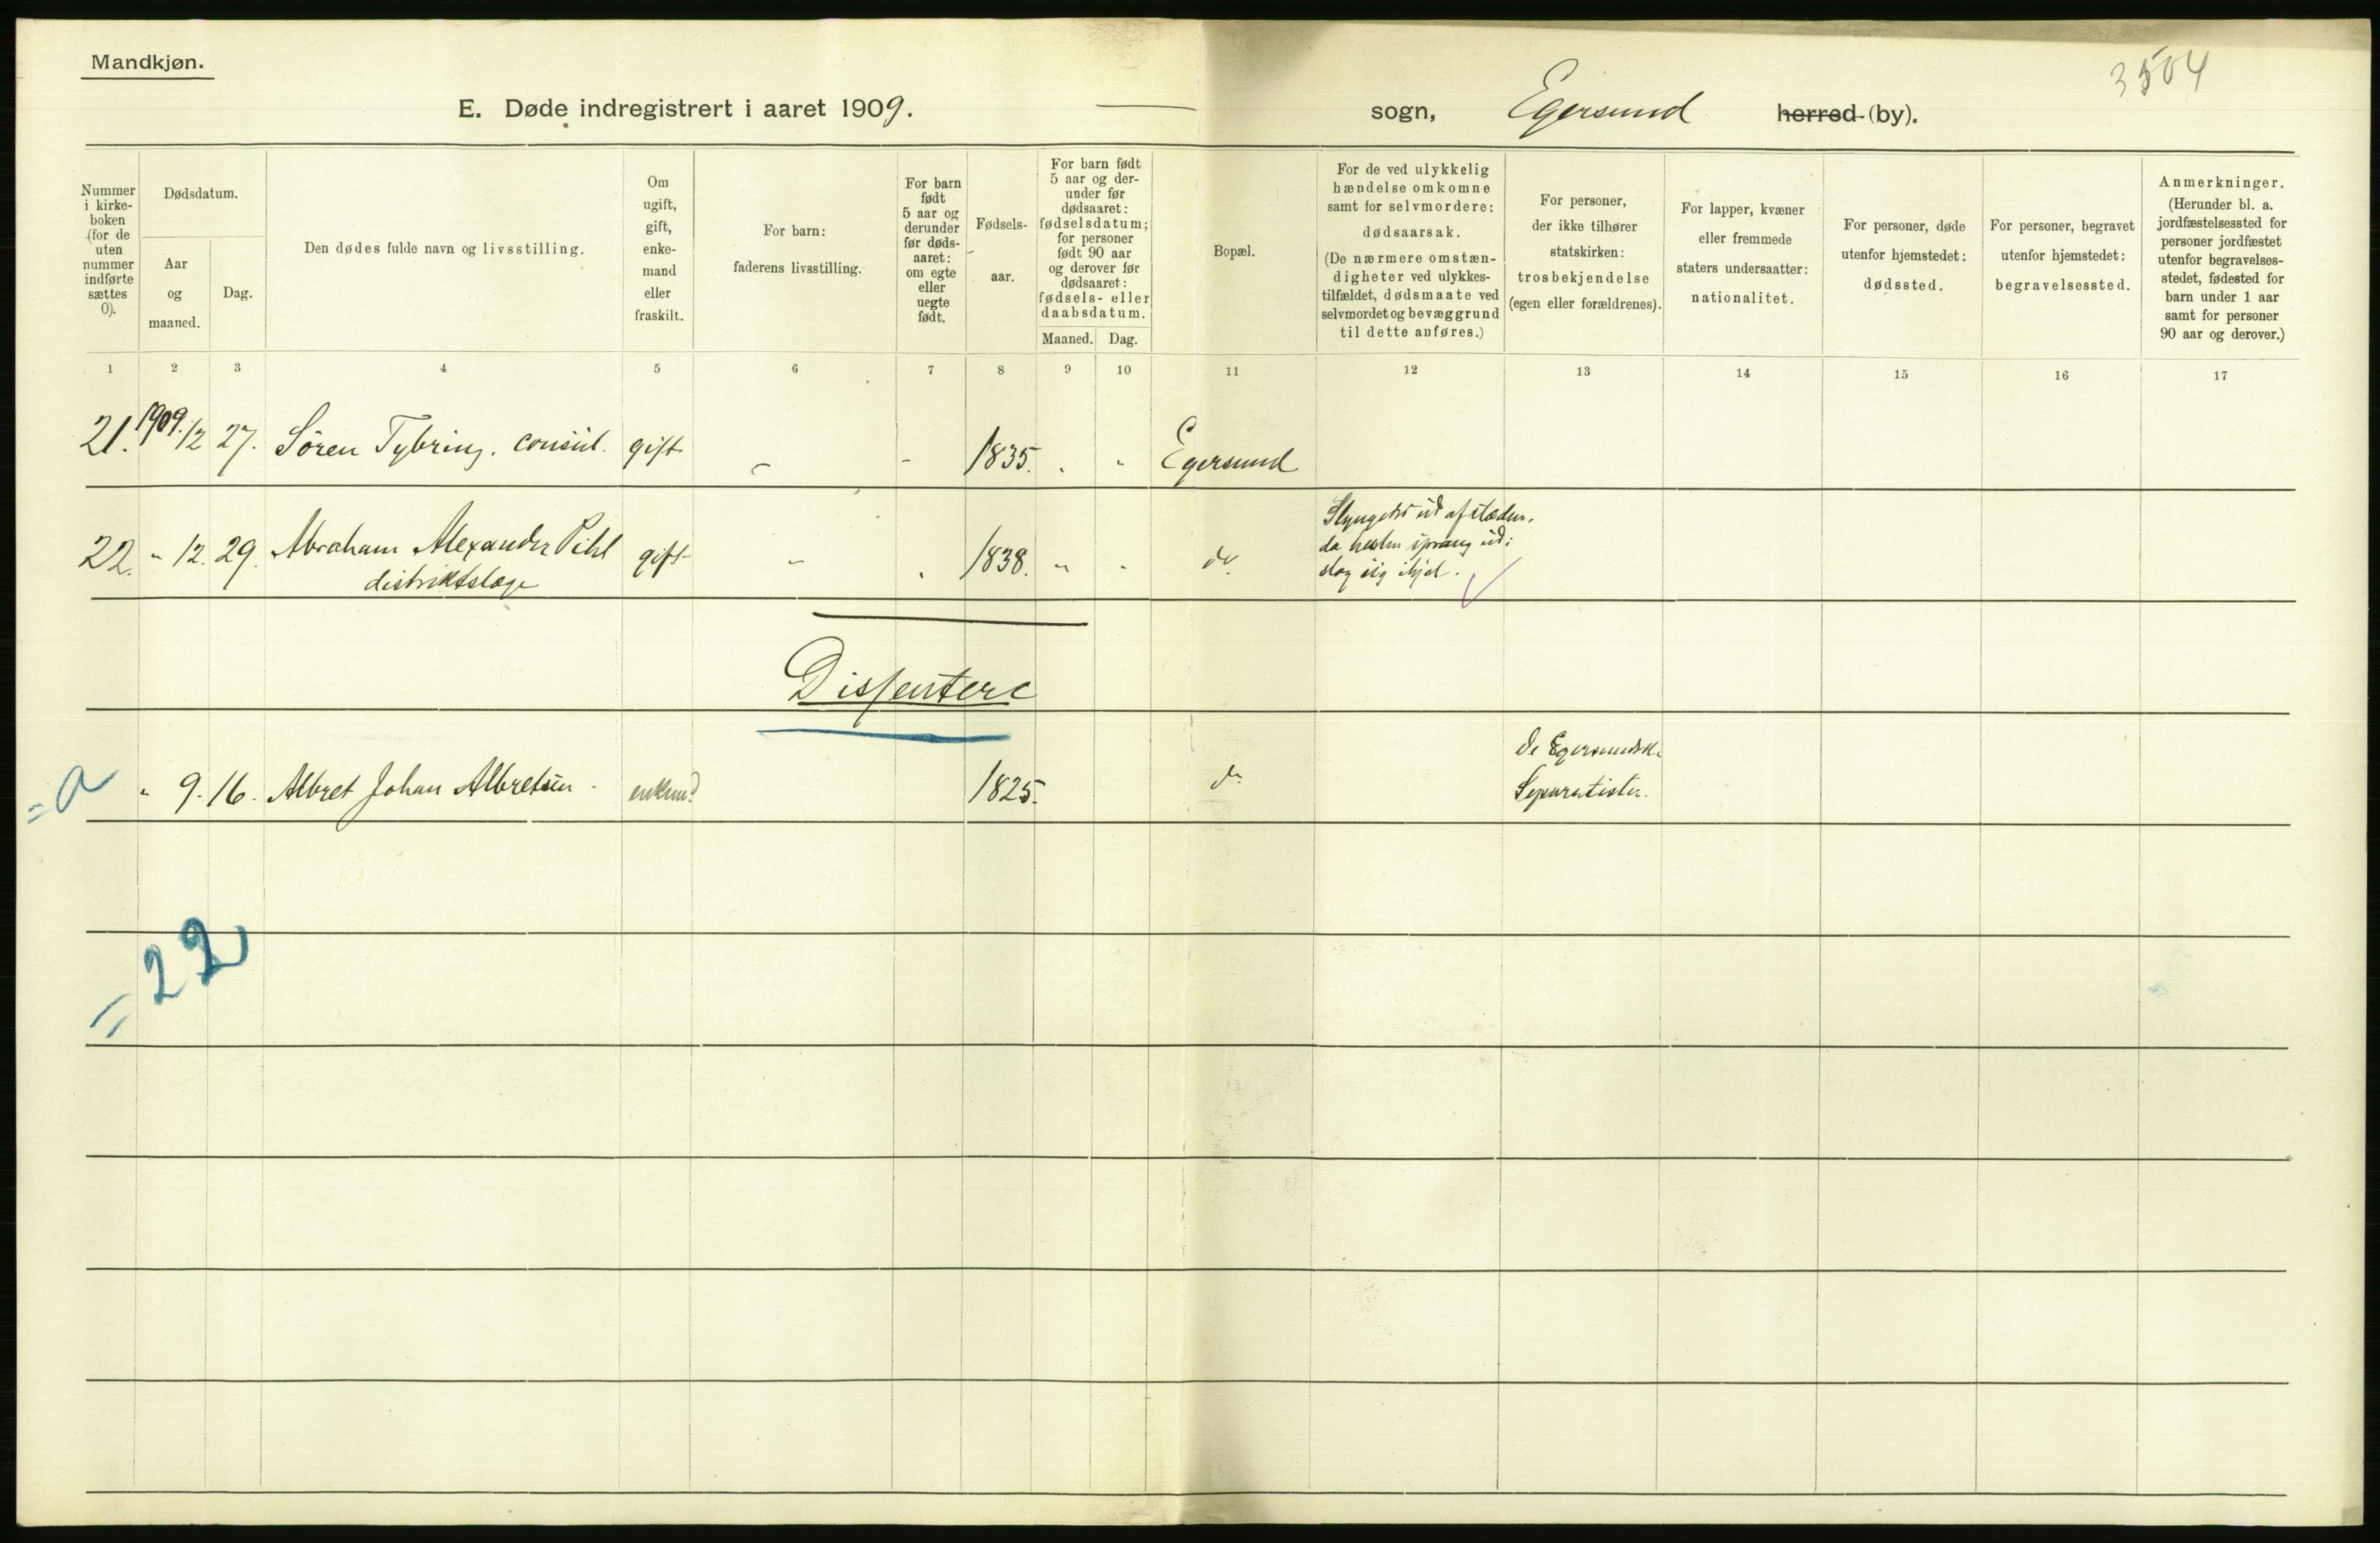 Mandkjøn.
3504
E. Døde indregistrert i aaret 1909. sogn, Egersund herred (by).
Nummer i kirke-boken (for de uten nummer indførte sættes 0).
Dødsdatum.
Aar og maaned.
Dag.
Den dødes fulde navn og livsstilling.
Om ugift, gift, enke-mand eller fraskilt.
For barn: faderens livsstilling.
For barn født 5 aar og derunder før døds-aaret: om egte eller uegte født.
Fødsels-aar.
For barn født 5 aar og der-under før dødsaaret: fødselsdatum; for personer født 90 aar og derover før dødsaaret: fødsels- eller daabsdatum.
Maaned. Dag.
Bopæl.
For de ved ulykkelig hændelse omkomne samt for selvmordere: dødsaarsak.
(De nærmere omstæn-digheter ved ulykkes-tilfældet, dødsmaate ved selvmordet og bevæggrund til dette anføres.)
For personer, der ikke tilhører statskirken: trosbekjendelse (egen eller forældrenes).
For lapper, kvæner eller fremmede staters undersaatter: nationalitet.
For personer, døde utenfor hjemstedet: dødssted.
For personer, begravet utenfor hjemstedet: begravelsessted.
Anmerkninger. (Herunder bl. a. jordfæstelsessted for personer jordfæstet utenfor begravelses-stedet, fødested for barn under 1 aar samt for personer 90 aar og derover.)
1 2 3 4 5 6 7 8 9 10 11 12 13 14 15 16 17
21. 1909. 12 27. Sören Tybring, consul. gift - - 1835. " " Egersund
22. " 12. 29. Abraham Alexander Pihl gift - " 1838. " " do.
distriktslæge
Slyngedes ud af slæden,
da hesten sprang ud;
slog sig ihjel.
Dissentere
= a " 9. 16. Albret Johan Albretsen - enkemd 1825. do.
De Egersundske
Separatister.
= 22